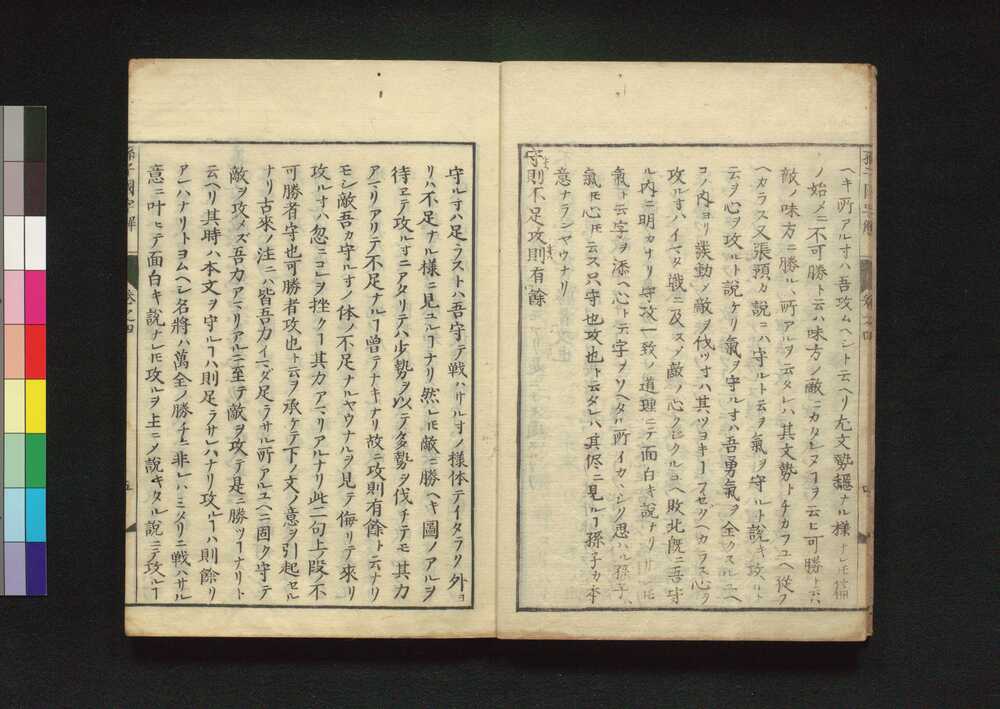 ヘキ所アルヿハ吾攻ムヘシト云ヘリ尤文勢穏ナル様ナレ𪜈篇
ノ始メニ不可勝ト云ハ味方ノ敵ニカタレヌヿヲ云ヒ可勝ト云ハ
敵ノ味方ニ勝ルヽ所アルヲ云タレハ其文勢トチカフユヘ從フ
ヘカラス又張預カ說ニハ守ルト云ヲ氣ヲ守ルト說キ攻ルト
云ヲ心ヲ攻ルト說ケリ氣ヲ守ルヿハ吾勇氣ヲ全クスルユヘ
コノ內ヨリ發動メ敵ヲ伐ツヿハ其ツヨキヿフセクヘカラス心ヲ
攻ルヿハイマタ戰ニ及スメ敵ノ心クジクルユヘ敗北既ニ吾守
ル內ニ明カナリ守攻一致ノ道理ニテ面白キ說ナリサレ𪜈
氣ト云字ヲ添ヘ心ト云字ヲソヘタル所イカヽシク思ハル孫子
氣𪜈心𪜈云ス只守也攻也ト云タレハ其侭ニ見ルヿ孫子カ本
意ナランヤウナリ
守則不足攻則有餘
守ルヿハ足ラストハ吾守テ戰ハサルヿノ様体テイタラク外ヨ
リハ不足ナル様ニ見ユルヿナリ然レ𪜈敵ニ勝ヘキ圖ノアルヲ
待ヱテ攻ルヿニアタリテハ少勢ヲ以テ多勢ヲ伐チテモ其力
アマリアリテ不足ナルヿ曽テナキナリ故ニ攻則有餘ト云ナリ
モシ敵吾カ守ルヿノ体ノ不足ナルヤウナルヲ見テ侮リテ來リ
攻ルヿハ忽ニコレヲ挫クヿ其力アマリアルナリ此二句上ノ段ノ不
可勝者守也可勝者攻也ト云ヲ承ケテ下ノ文ノ意ヲ引起セル
ナリ古來ノ注ニハ皆吾力イマダ足ラサル所アルユヘニ固ク守テ
敵ヲ攻メズ吾力アマリアルニ至テ敵ヲ攻テ是ニ勝ツヿナリト
云ヘリ其時ハ本文ヲ守ルヿハ則足ラサレハナリ攻ルヿハ則餘リ
アレハナリトヨムヘシ名將ハ萬全ノ勝チニ非レハミタリニ戰ハサル
意ニ叶ヒテ面白キ說ナレ𪜈攻ルヲ主ニメ說キタル說ニテ攻ルヿ
孫子國字解
卷之四
五